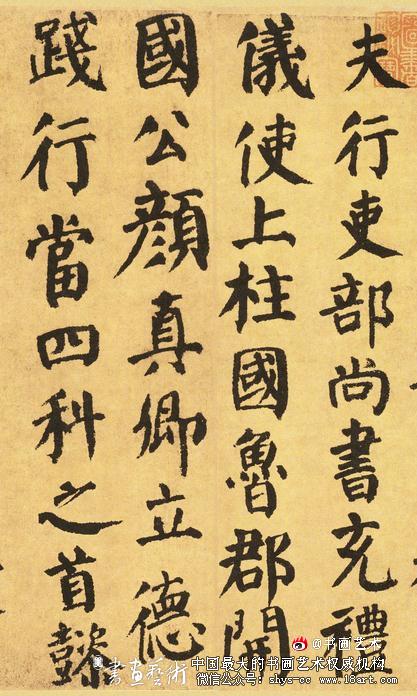 夫行吏部尚書充禮
儀使上柱國魯郡開
國公顏真卿立德
踐行當四科之首懿
@书画艺术
書畫藝術
中国最大的书画艺术权威机构
微信公众号: shys-cc www.1a1414.com